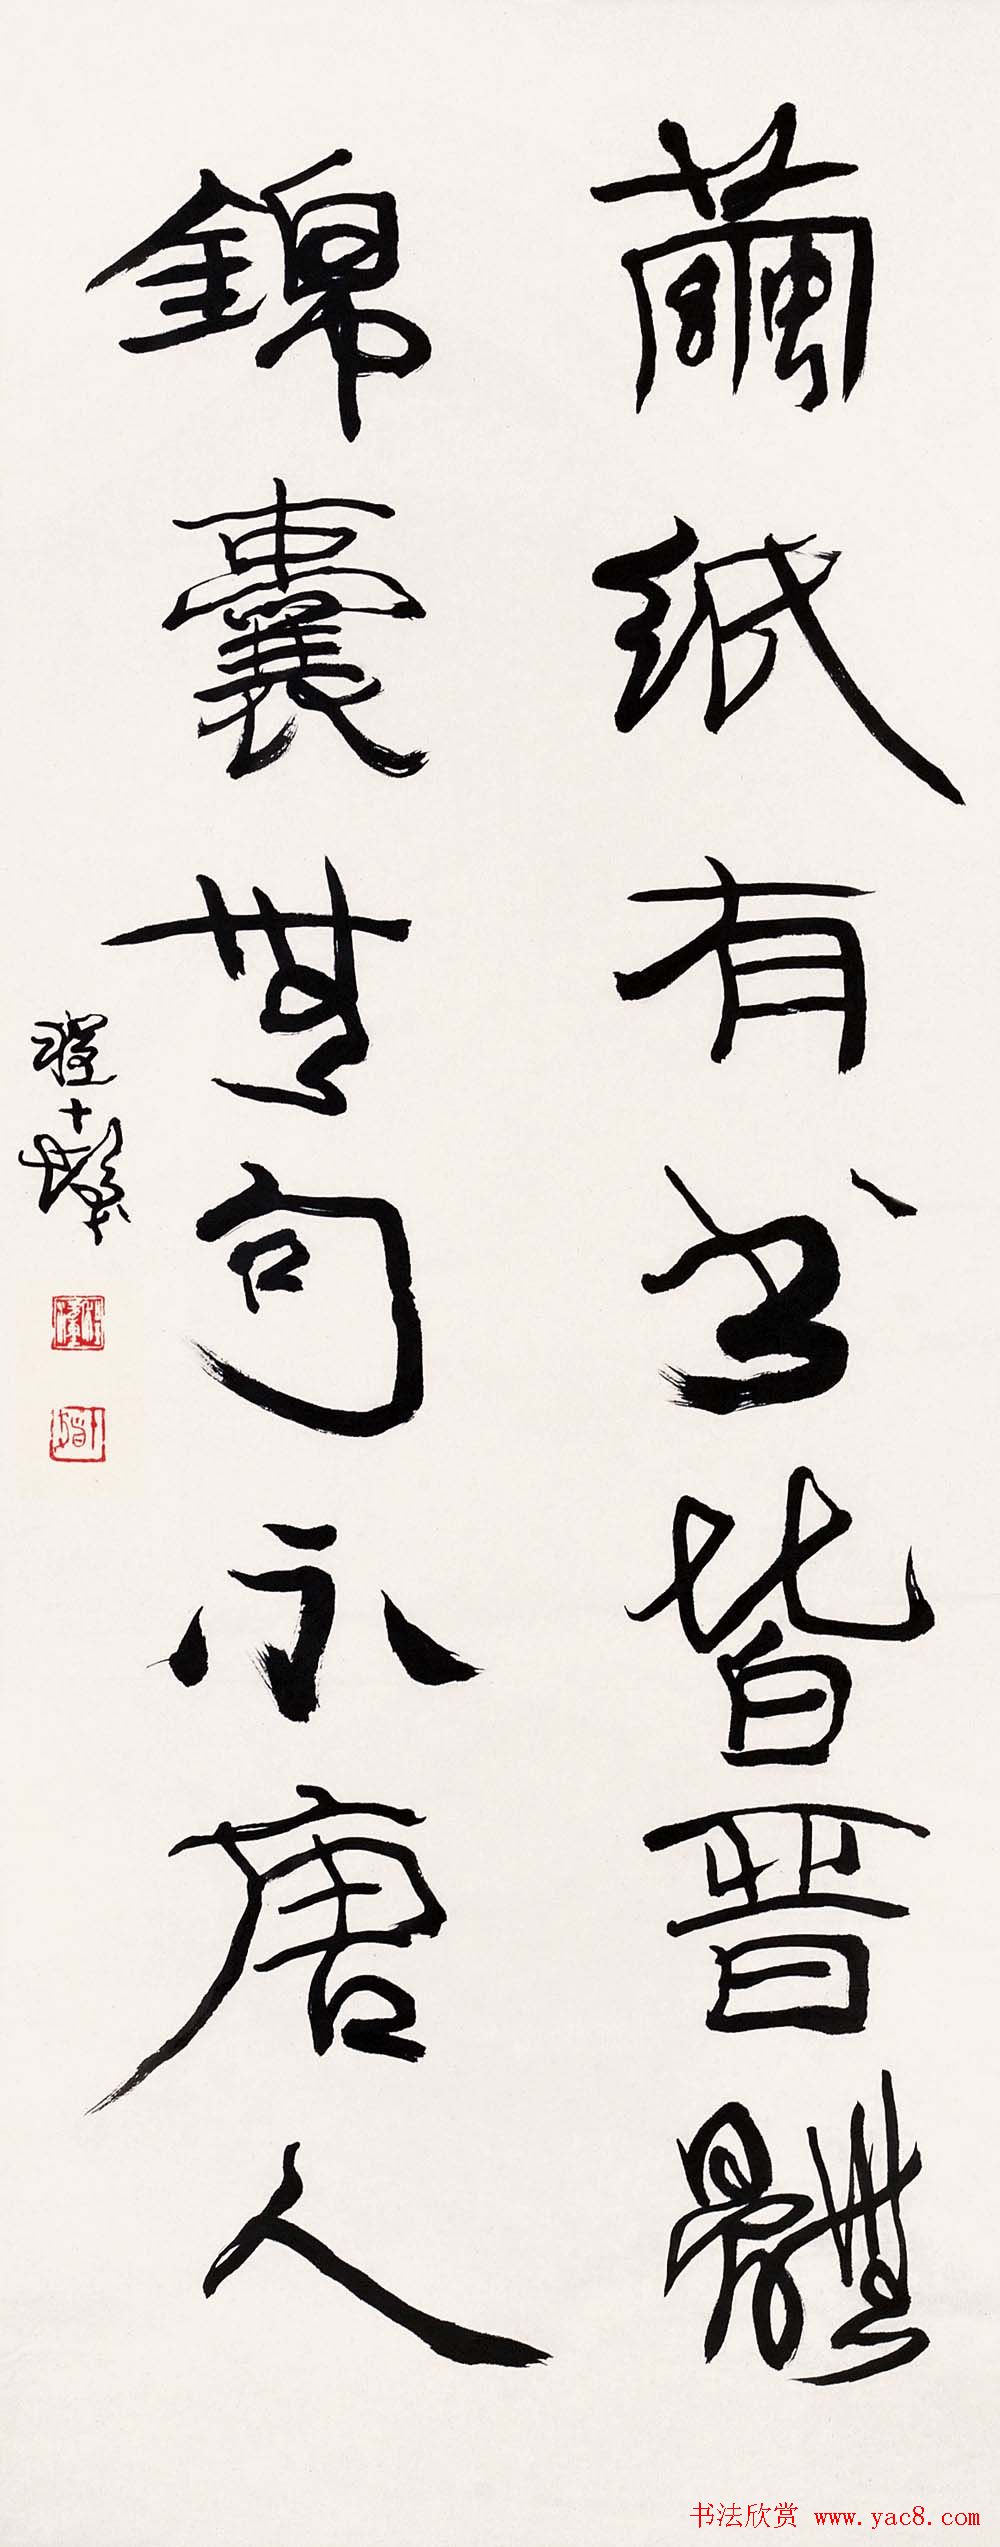 繭紙有书皆晋體
錦囊無句不唐人
程十髮
书法欣赏 www.yac8.com